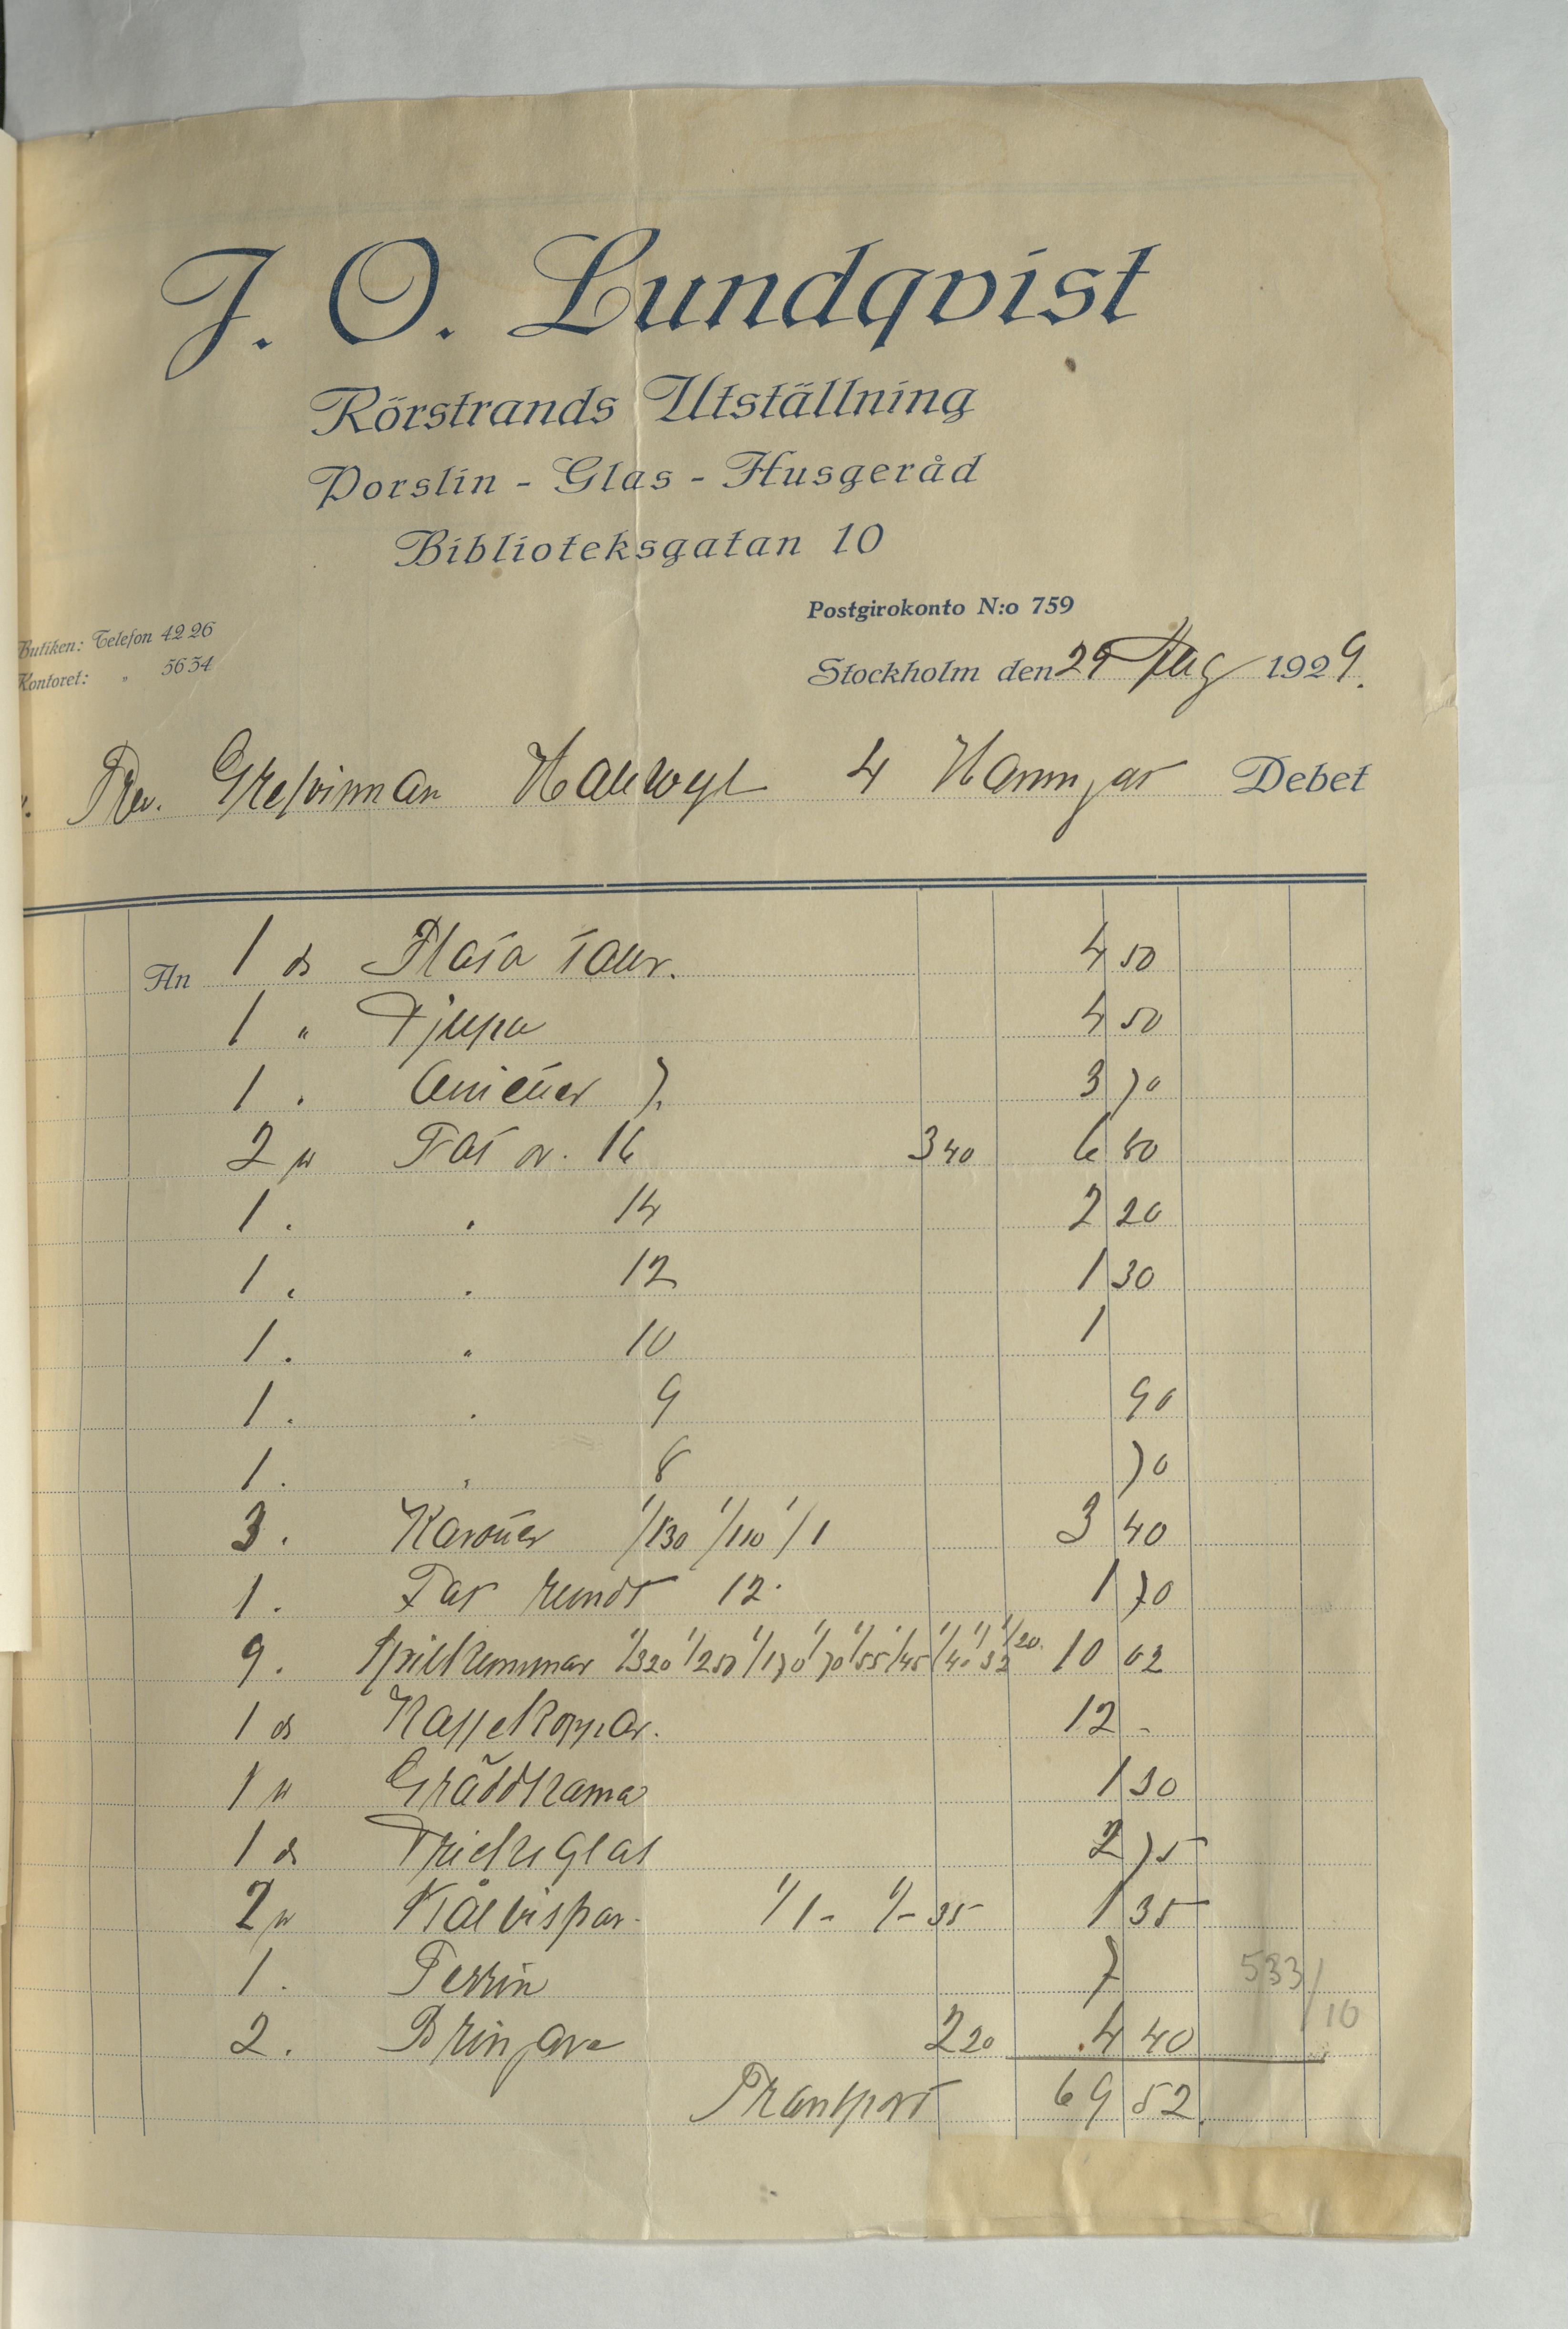 J. O. Lundqvist
Rörstrands Utställning
Porslin - Glas - Husgeråd
Biblioteksgatan 10
Postgirokonto N:o 759
Butiken: Telefon 42 26
Kontoret: " 56 34
Stockholm den 29 Aug 1929.
Grefvinnan Hallwyl Debet
An 1 ds Flata tallr. 4 50
1 " Djupa 4 50
1 . Assietter 7. 3 70
2 st Fat ov. 16 3 40 6 80
1 . . 14 2 20
1 . . 12 1 30
1 . . 10 1
1 . . 9 90
1 . . 8 70
3 . Karotter 1/130 1/110 1/1 3 40
1 . Fat rundt 12. 1 70
9 . Spilkummar 1/320 1/250 1/170 1/70 1/55 1/45 1/40 1/32 1/20. 10 02
1 ds Kaffekoppar. 12 -
1 st Gräddkanna 1 30
1 ds Dricksglas 2 75
2 st Stålvispar. 1/1- 1/-35 1 35
1 . Terrin 7
533/10
2 . Bringare 2 20 4 40
Transport 69 52.